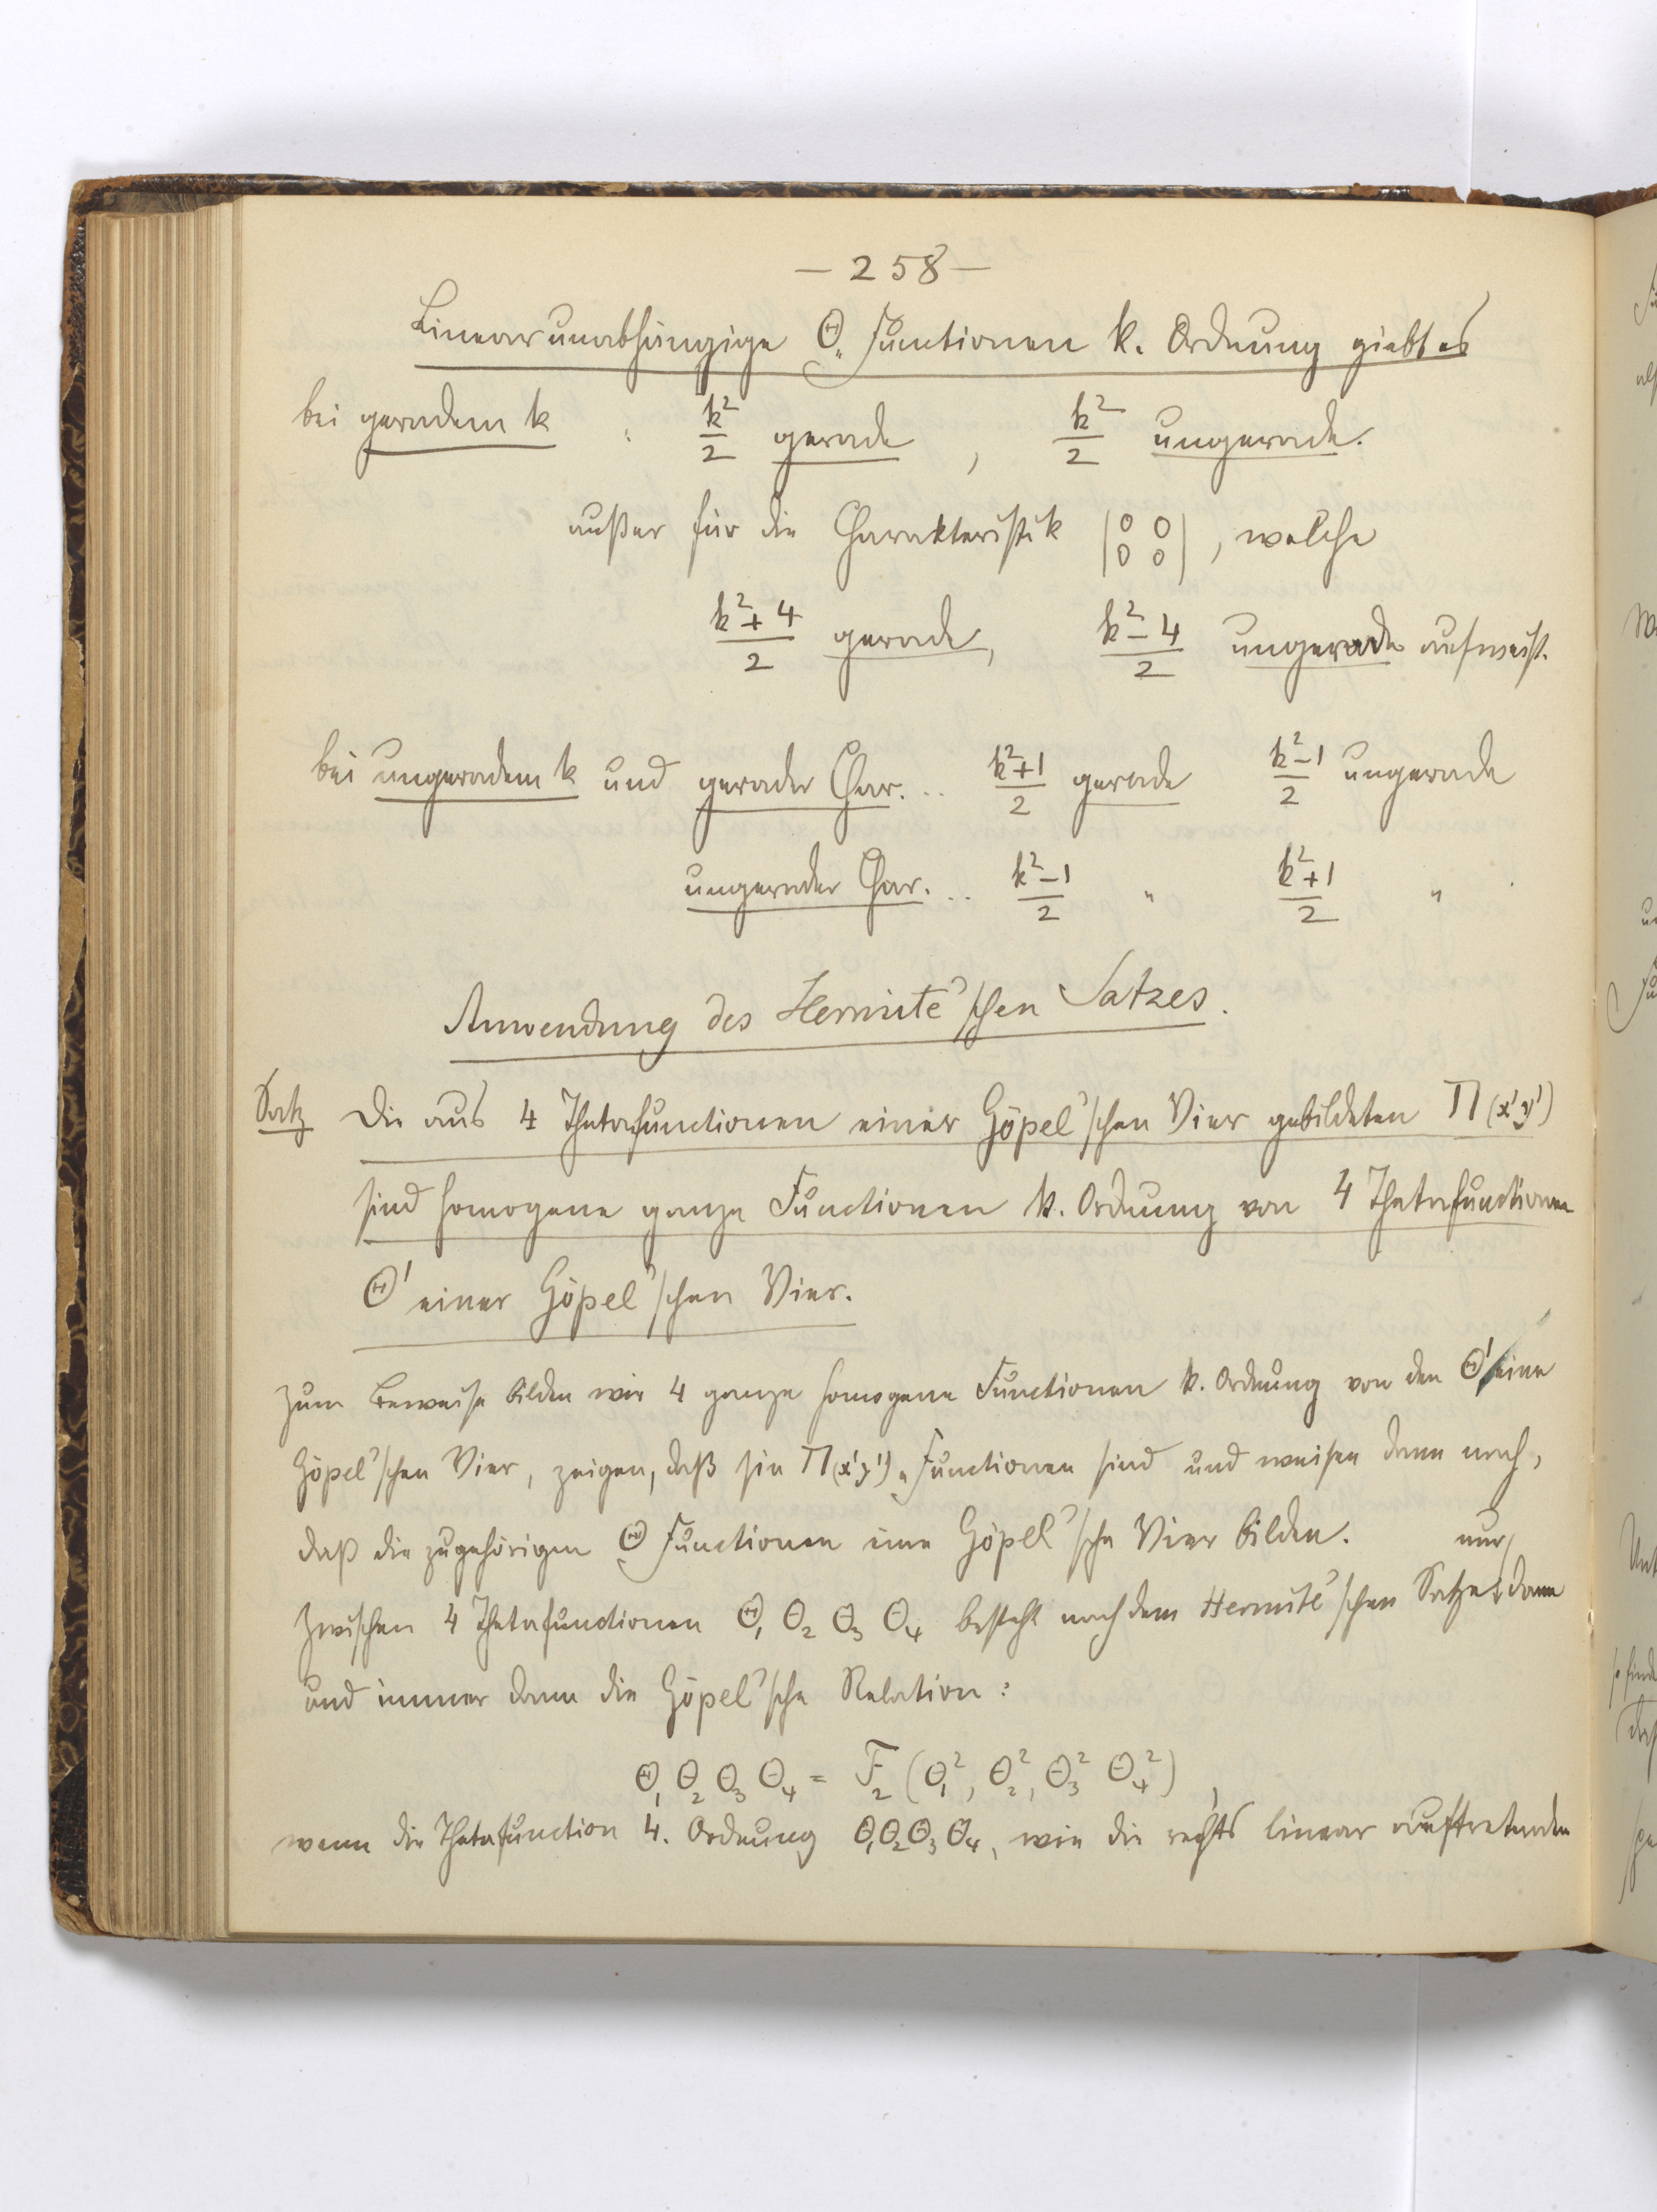 — 258 —
Linear unabhängige Θ„ Functionen k. Ordnung giebt es
bei geradem k : k²/2 gerade , k²/2 ungerade.
außer für die Charakteristik |0 0 / 0 0| , welche
(k²+4)/2 gerade, (k²-4)/2 ungerade aufweist.
bei ungeradem k und gerader Char. .. (k²+1)/2 gerade (k²-1)/2 ungerade
ungerader Char. .. (k²-1)/2 " (k²+1)/2 "
Anwendung des Hermite'schen Satzes.
Satz Die aus 4 Thetafunctionen einer Göpel'schen Vier gebildeten Π(x'y')
sind homogene ganze Functionen k. Ordnung von 4 Thetafunctionen
Θ' einer Göpel'schen Vier.
Zum Beweise bilden wir 4 ganze homogene Functionen k. Ordnung von den Θ' eine
Göpel'schen Vier, zeigen, daß sie Π(x'y')„ Functionen sind und weisen dann nach,
daß die zugehörigen Θ Functionen eine Göpel'sche Vier bilden. nur
Zwischen 4 Thetafunctionen Θ₁ Θ₂ Θ₃ Θ₄ besteht nach dem Hermite'schen Satze dann
und immer dann die Göpel'sche Relation:
Θ₁ Θ₂ Θ₃ Θ₄ = F₂ (Θ₁², Θ₂², Θ₃² Θ₄²) ,
wenn die Thetafunction 4. Ordnung Θ₁Θ₂Θ₃Θ₄, wie die rechts linear auftretenden